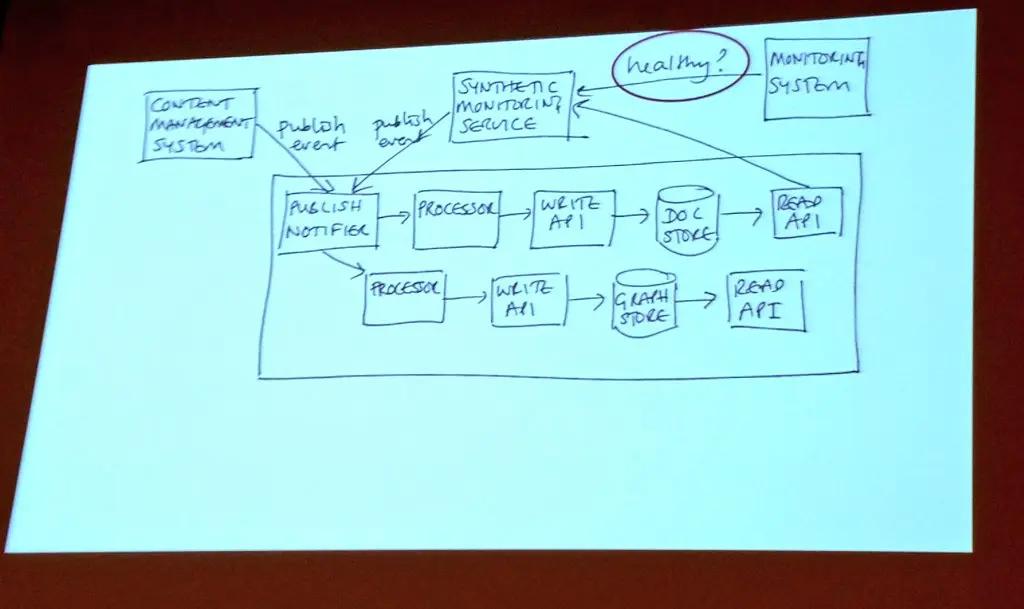 CONTENT
MANAGEMENT
SYSTEM
publish
event
publish
event
SYNTHETIC
MONITORING
SERVICE
healthy?
MONITORING
SYSTEM
PUBLISH
NOTIFIER
PROCESSOR
WRITE
API
DOC
STORE
READ
API
PROCESSOR
WRITE
API
GRAPH
STORE
READ
API